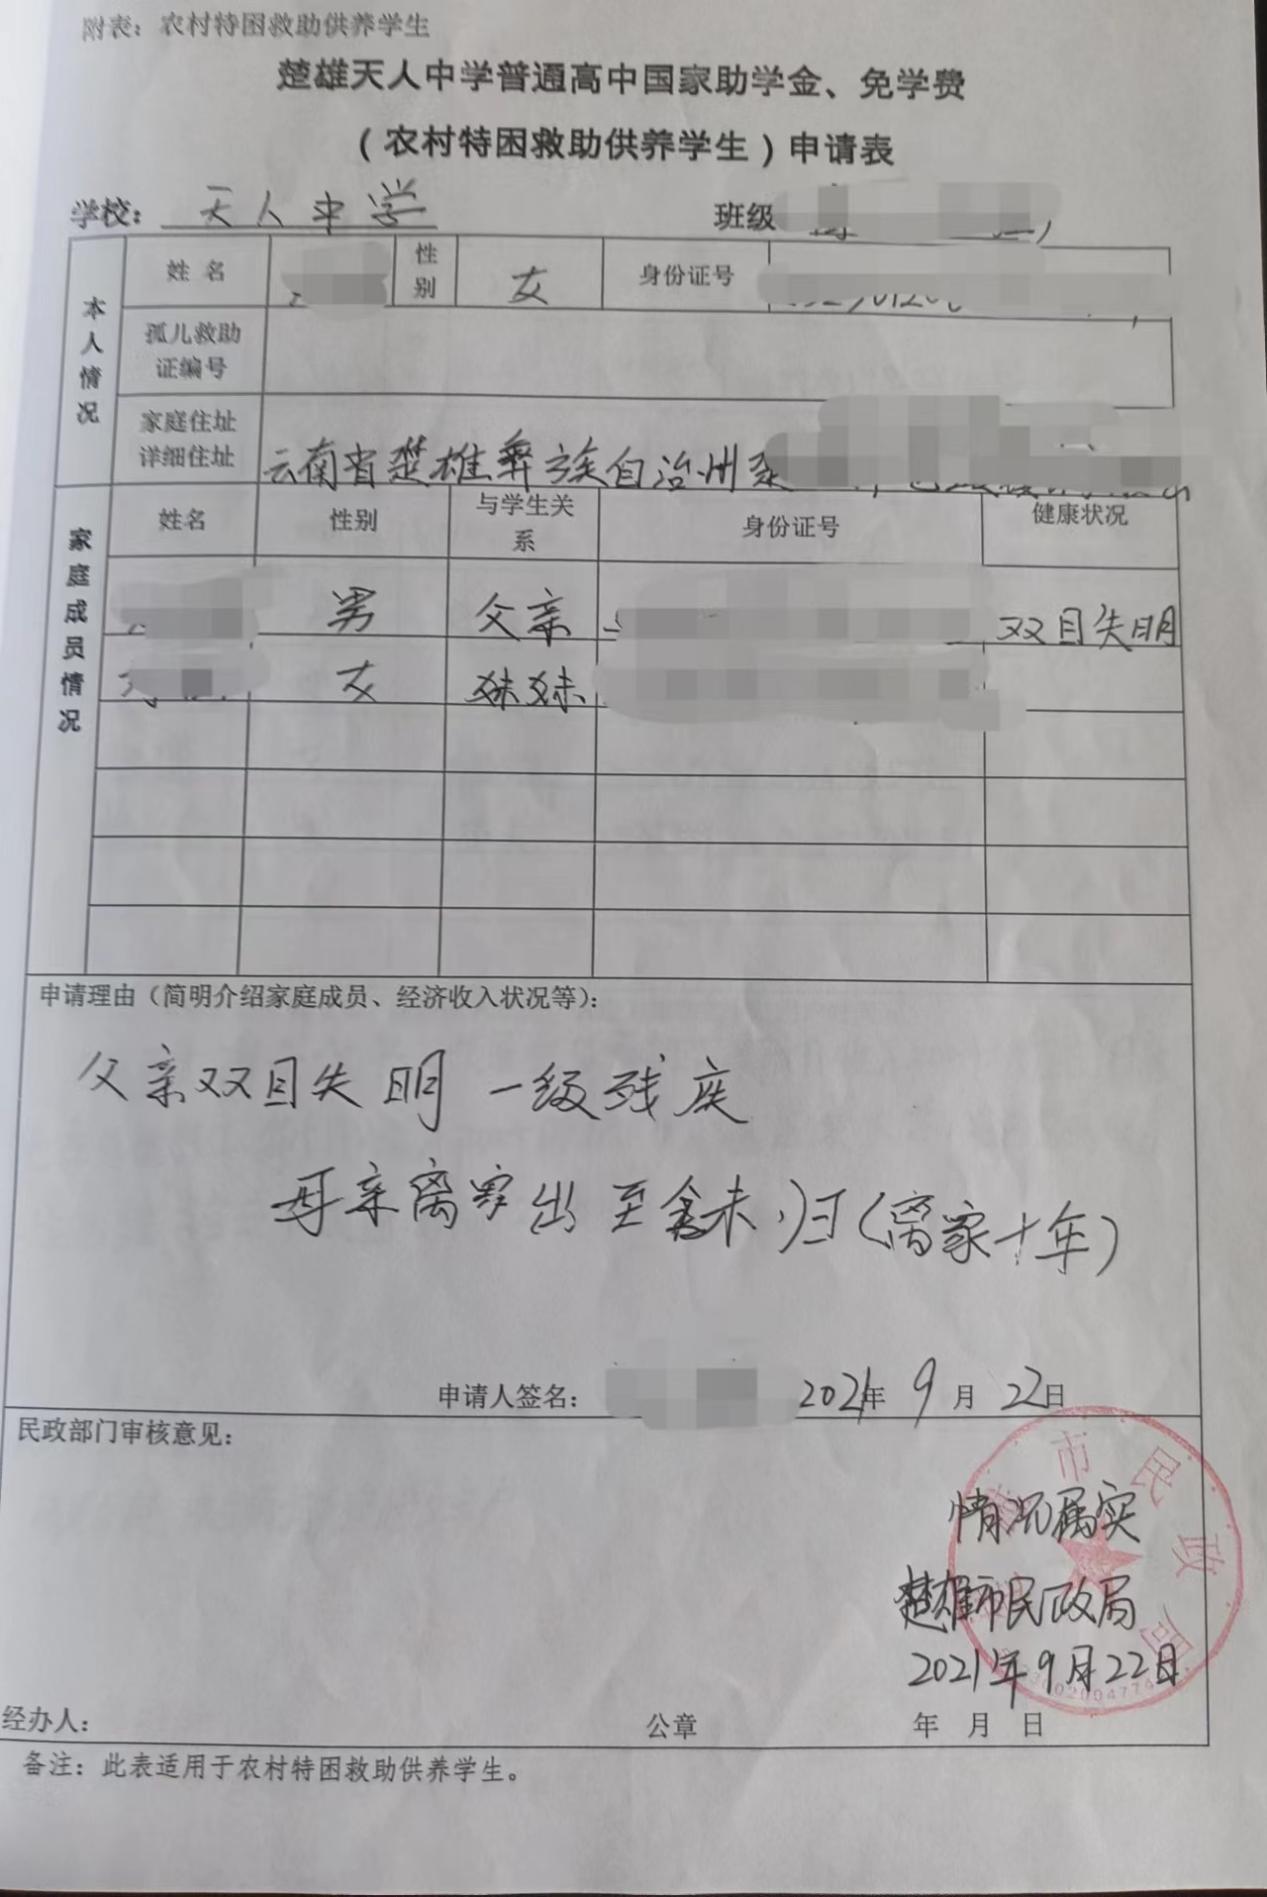 附表：农村特困救助供养学生
楚雄天人中学普通高中国家助学金、免学费
（农村特困救助供养学生）申请表
学校：天人中学 班级
本人情况
姓名 性别 女 身份证号
孤儿救助证编号
家庭住址详细住址 云南省楚雄彝族自治州
家庭成员情况
姓名 性别 与学生关系 身份证号 健康状况
男 父亲 双目失明
女 妹妹
申请理由（简明介绍家庭成员、经济收入状况等）：
父亲双目失明 一级残疾
母亲离家出 至今未归（离家十年）
申请人签名： 2021年9月22日
民政部门审核意见：
情况属实
楚雄市民政局
2021年9月22日
经办人： 公章 年 月 日
备注：此表适用于农村特困救助供养学生。
市民政局